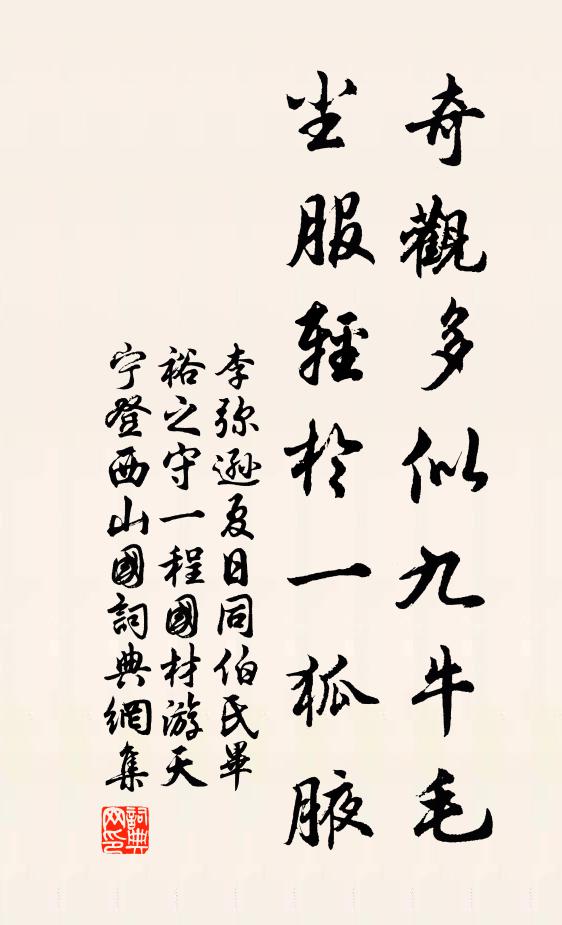 奇觀多似九牛毛
坐服輕於一狐腋
李弥遜夏日同伯氏畢
裕之守一程國材游天
宁登西山國詞典網集
詞典
网印